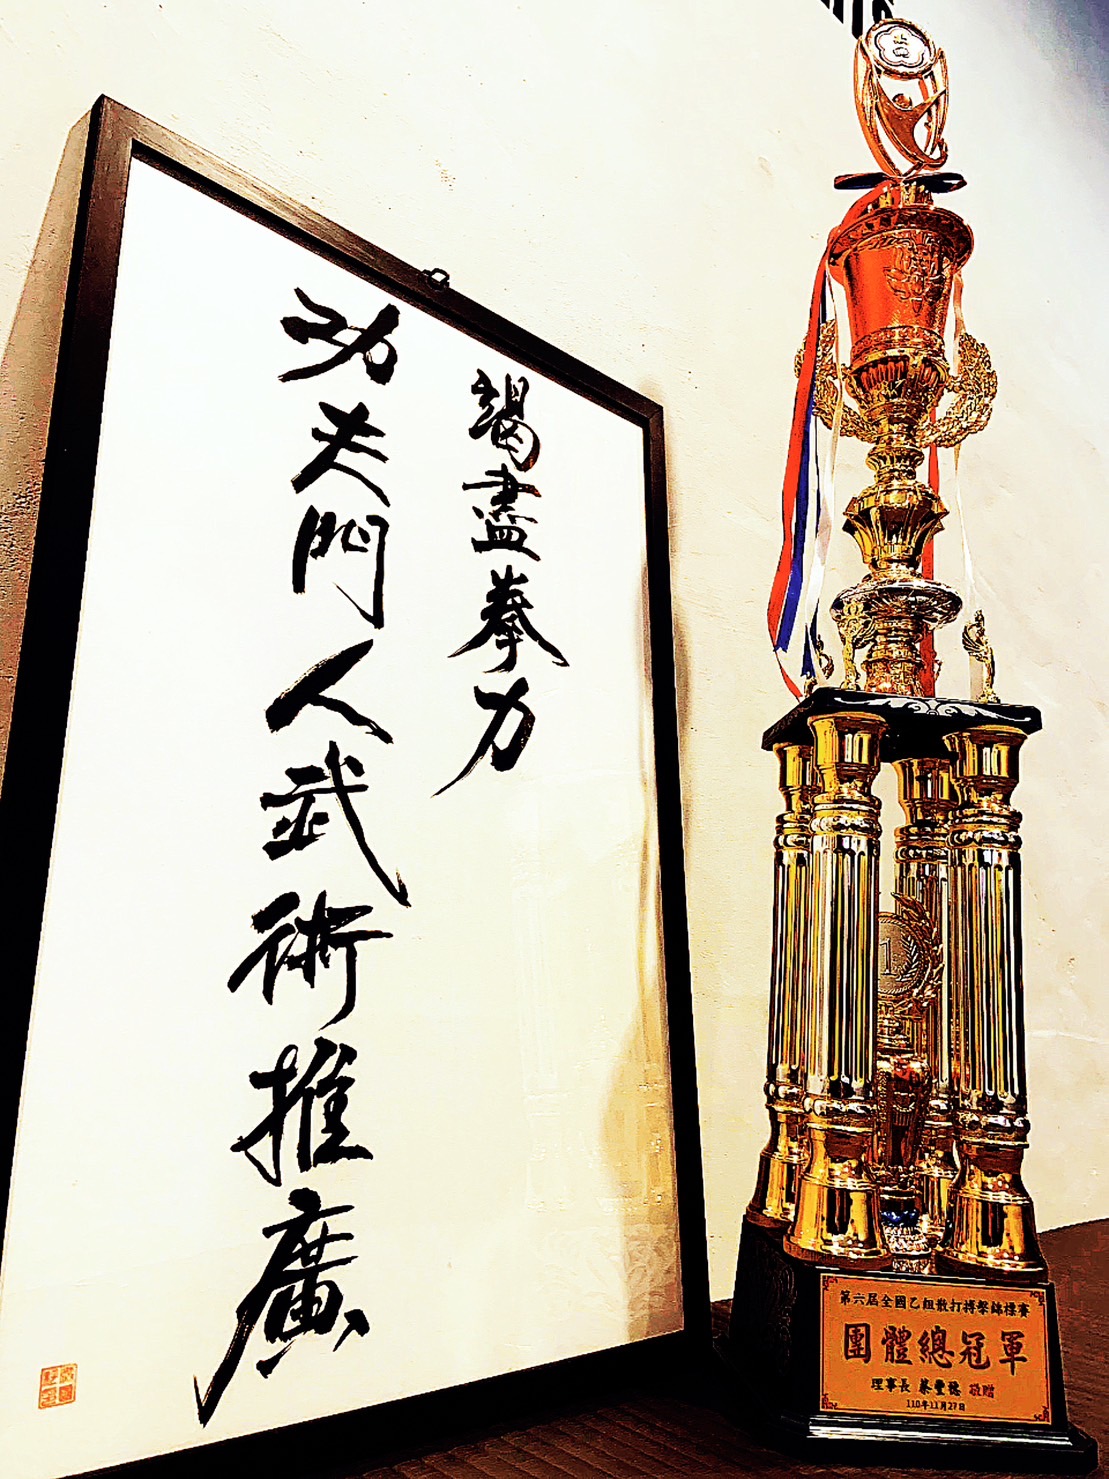 竭盡拳力
功夫門人武術推廣
1
第六屆全國乙組散打搏擊錦標賽
團體總冠軍
理事長 蔡豐穗 敬贈
110年11月27日